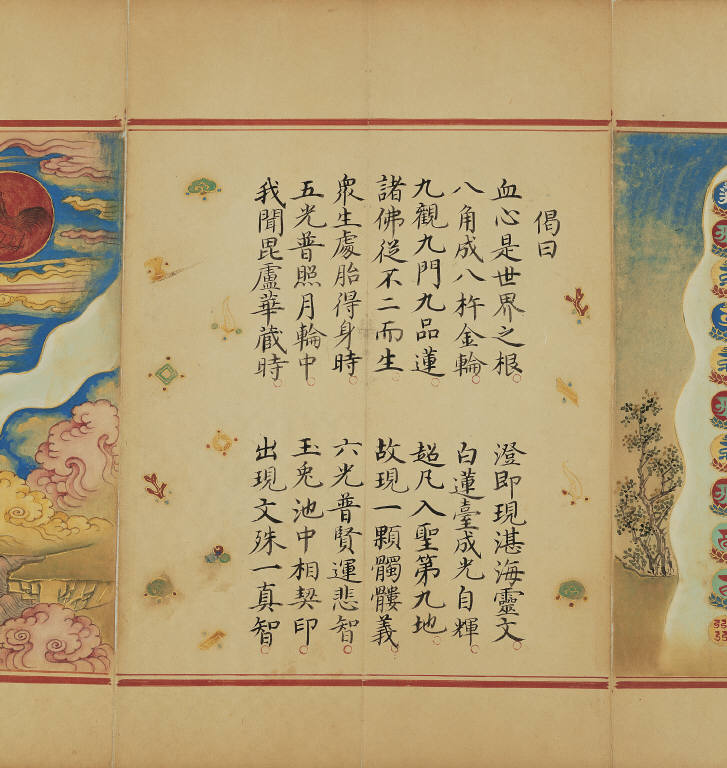 偈曰
血心是世界之根。澄即現湛海靈文
八角成八杵金輪。白蓮臺成光自輝
九觀九門九品蓮。超凡入聖第九地。
諸佛從不二而生。故現一顆髑髏義。
衆生處胎得身時。六光普賢運悲智。
五光普照月輪中。玉兔池中相契印。
我聞毘盧華藏時。出現文殊一真智。